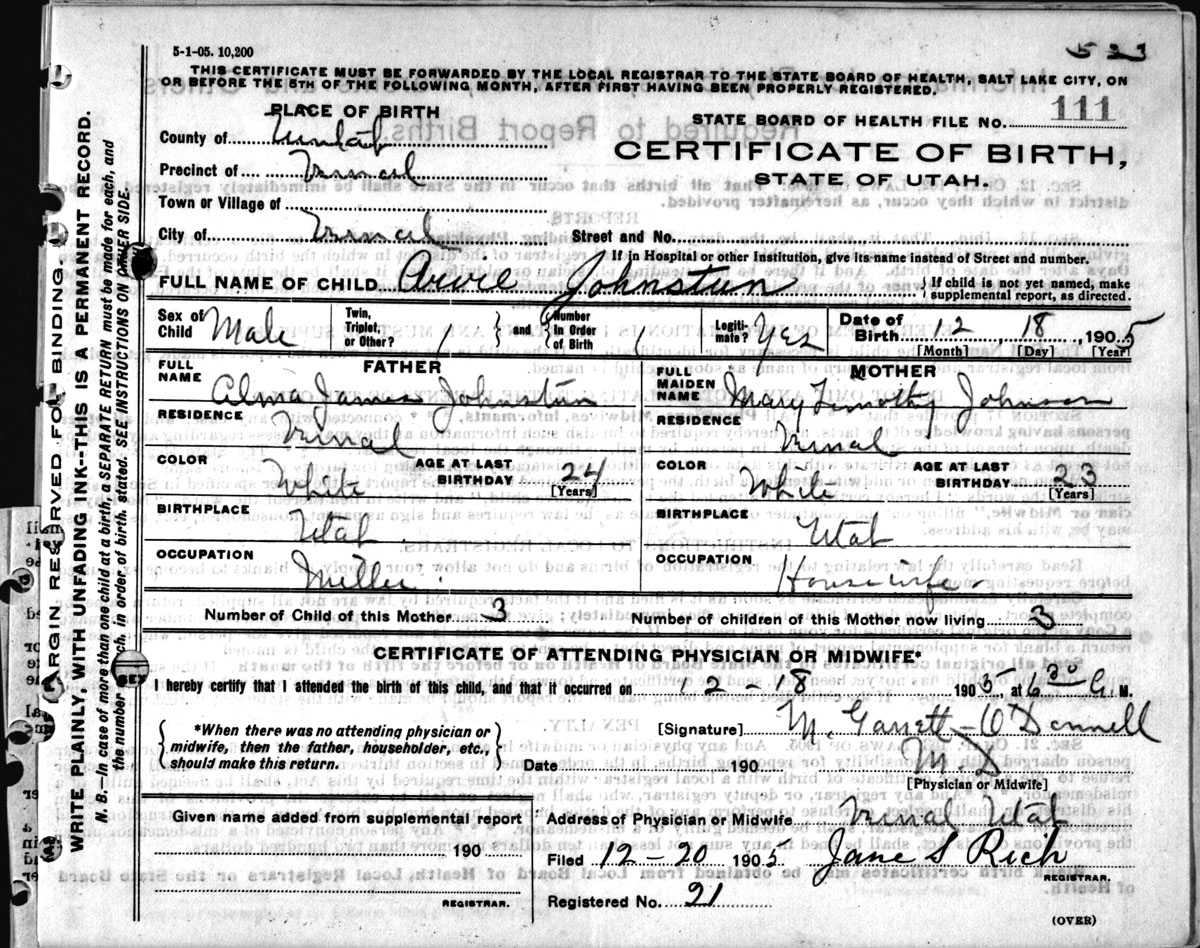 5-1-05. 10,200
523
THIS CERTIFICATE MUST BE FORWARDED BY THE LOCAL REGISTRAR TO THE STATE BOARD OF HEALTH, SALT LAKE CITY, ON
OR BEFORE THE 5TH OF THE FOLLOWING MONTH, AFTER FIRST HAVING BEEN PROPERLY REGISTERED.
PLACE OF BIRTH
STATE BOARD OF HEALTH FILE NO. 111
County of Uintah
CERTIFICATE OF BIRTH,
STATE OF UTAH.
Precinct of Vernal
Town or Village of
City of Vernal Street and No.
If in Hospital or other Institution, give its name instead of Street and number.
FULL NAME OF CHILD Arvie Johnstun { If child is not yet named, make supplemental report, as directed.
Sex of Child Male Twin, Triplet, or Other? / } and { Number in Order of Birth / Legitimate? Yes Date of Birth 12 18 1905
[Month] [Day] [Year]
FATHER MOTHER
FULL NAME Alma James Johnstun FULL MAIDEN NAME Mary Timothy Johnson
RESIDENCE Vernal RESIDENCE Vernal
COLOR White AGE AT LAST BIRTHDAY 24 [Years] COLOR White AGE AT LAST BIRTHDAY 23 [Years]
BIRTHPLACE Utah BIRTHPLACE Utah
OCCUPATION Miller OCCUPATION Housewife
Number of Child of this Mother 3 Number of children of this Mother now living 3
CERTIFICATE OF ATTENDING PHYSICIAN OR MIDWIFE*
I hereby certify that I attended the birth of this child, and that it occurred on 12-18 1905, at 6 30 A. M.
{ *When there was no attending physician or midwife, then the father, householder, etc., should make this return. }
[Signature] M. Garrett-O'Donnell
Date 190 M D
[Physician or Midwife]
Given name added from supplemental report
190
REGISTRAR.
Address of Physician or Midwife Vernal Utah
Filed 12-20 1905 Jane S Rich
REGISTRAR.
Registered No. 21
(OVER)
MARGIN RESERVED FOR BINDING.
WRITE PLAINLY, WITH UNFADING INK--THIS IS A PERMANENT RECORD.
N. B.--In case of more than one child at a birth, a SEPARATE RETURN must be made for each, and
the number of each, in order of birth, stated. SEE INSTRUCTIONS ON OTHER SIDE.